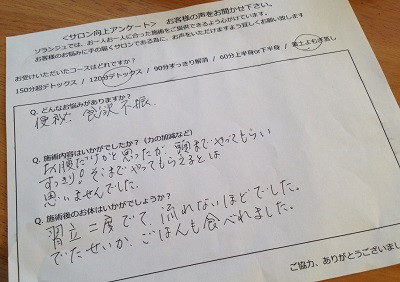 <サロン向上アンケート> お客様の声をお聞かせ下さい。
ソランジュでは、お一人お一人に合った施術をご提供できるよう心がけています。
お客様のお悩みに手の届くサロンである為に、お声をいただけますよう宜しくお願い致します
お受けいただいたコースはどれですか?
150分超デトックス / 120分デトックス / 90分すっきり解消 / 60分上半身or下半身 / 蒸上よもぎ蒸し
Q. どんなお悩みがありますか?
便秘、食欲不振、
Q. 施術内容はいかがでしたか? (力の加減など)
お腹だけかと思ったが、頭までやってもらい
すっきり! そこまでやってもらえるとは
思いませんでした。
Q. 施術後のお体はいかがでしょうか?
翌立 二度でて 流れないほどでした。
でたせいか、ごはんも食べれました。
ご協力、ありがとうございまし